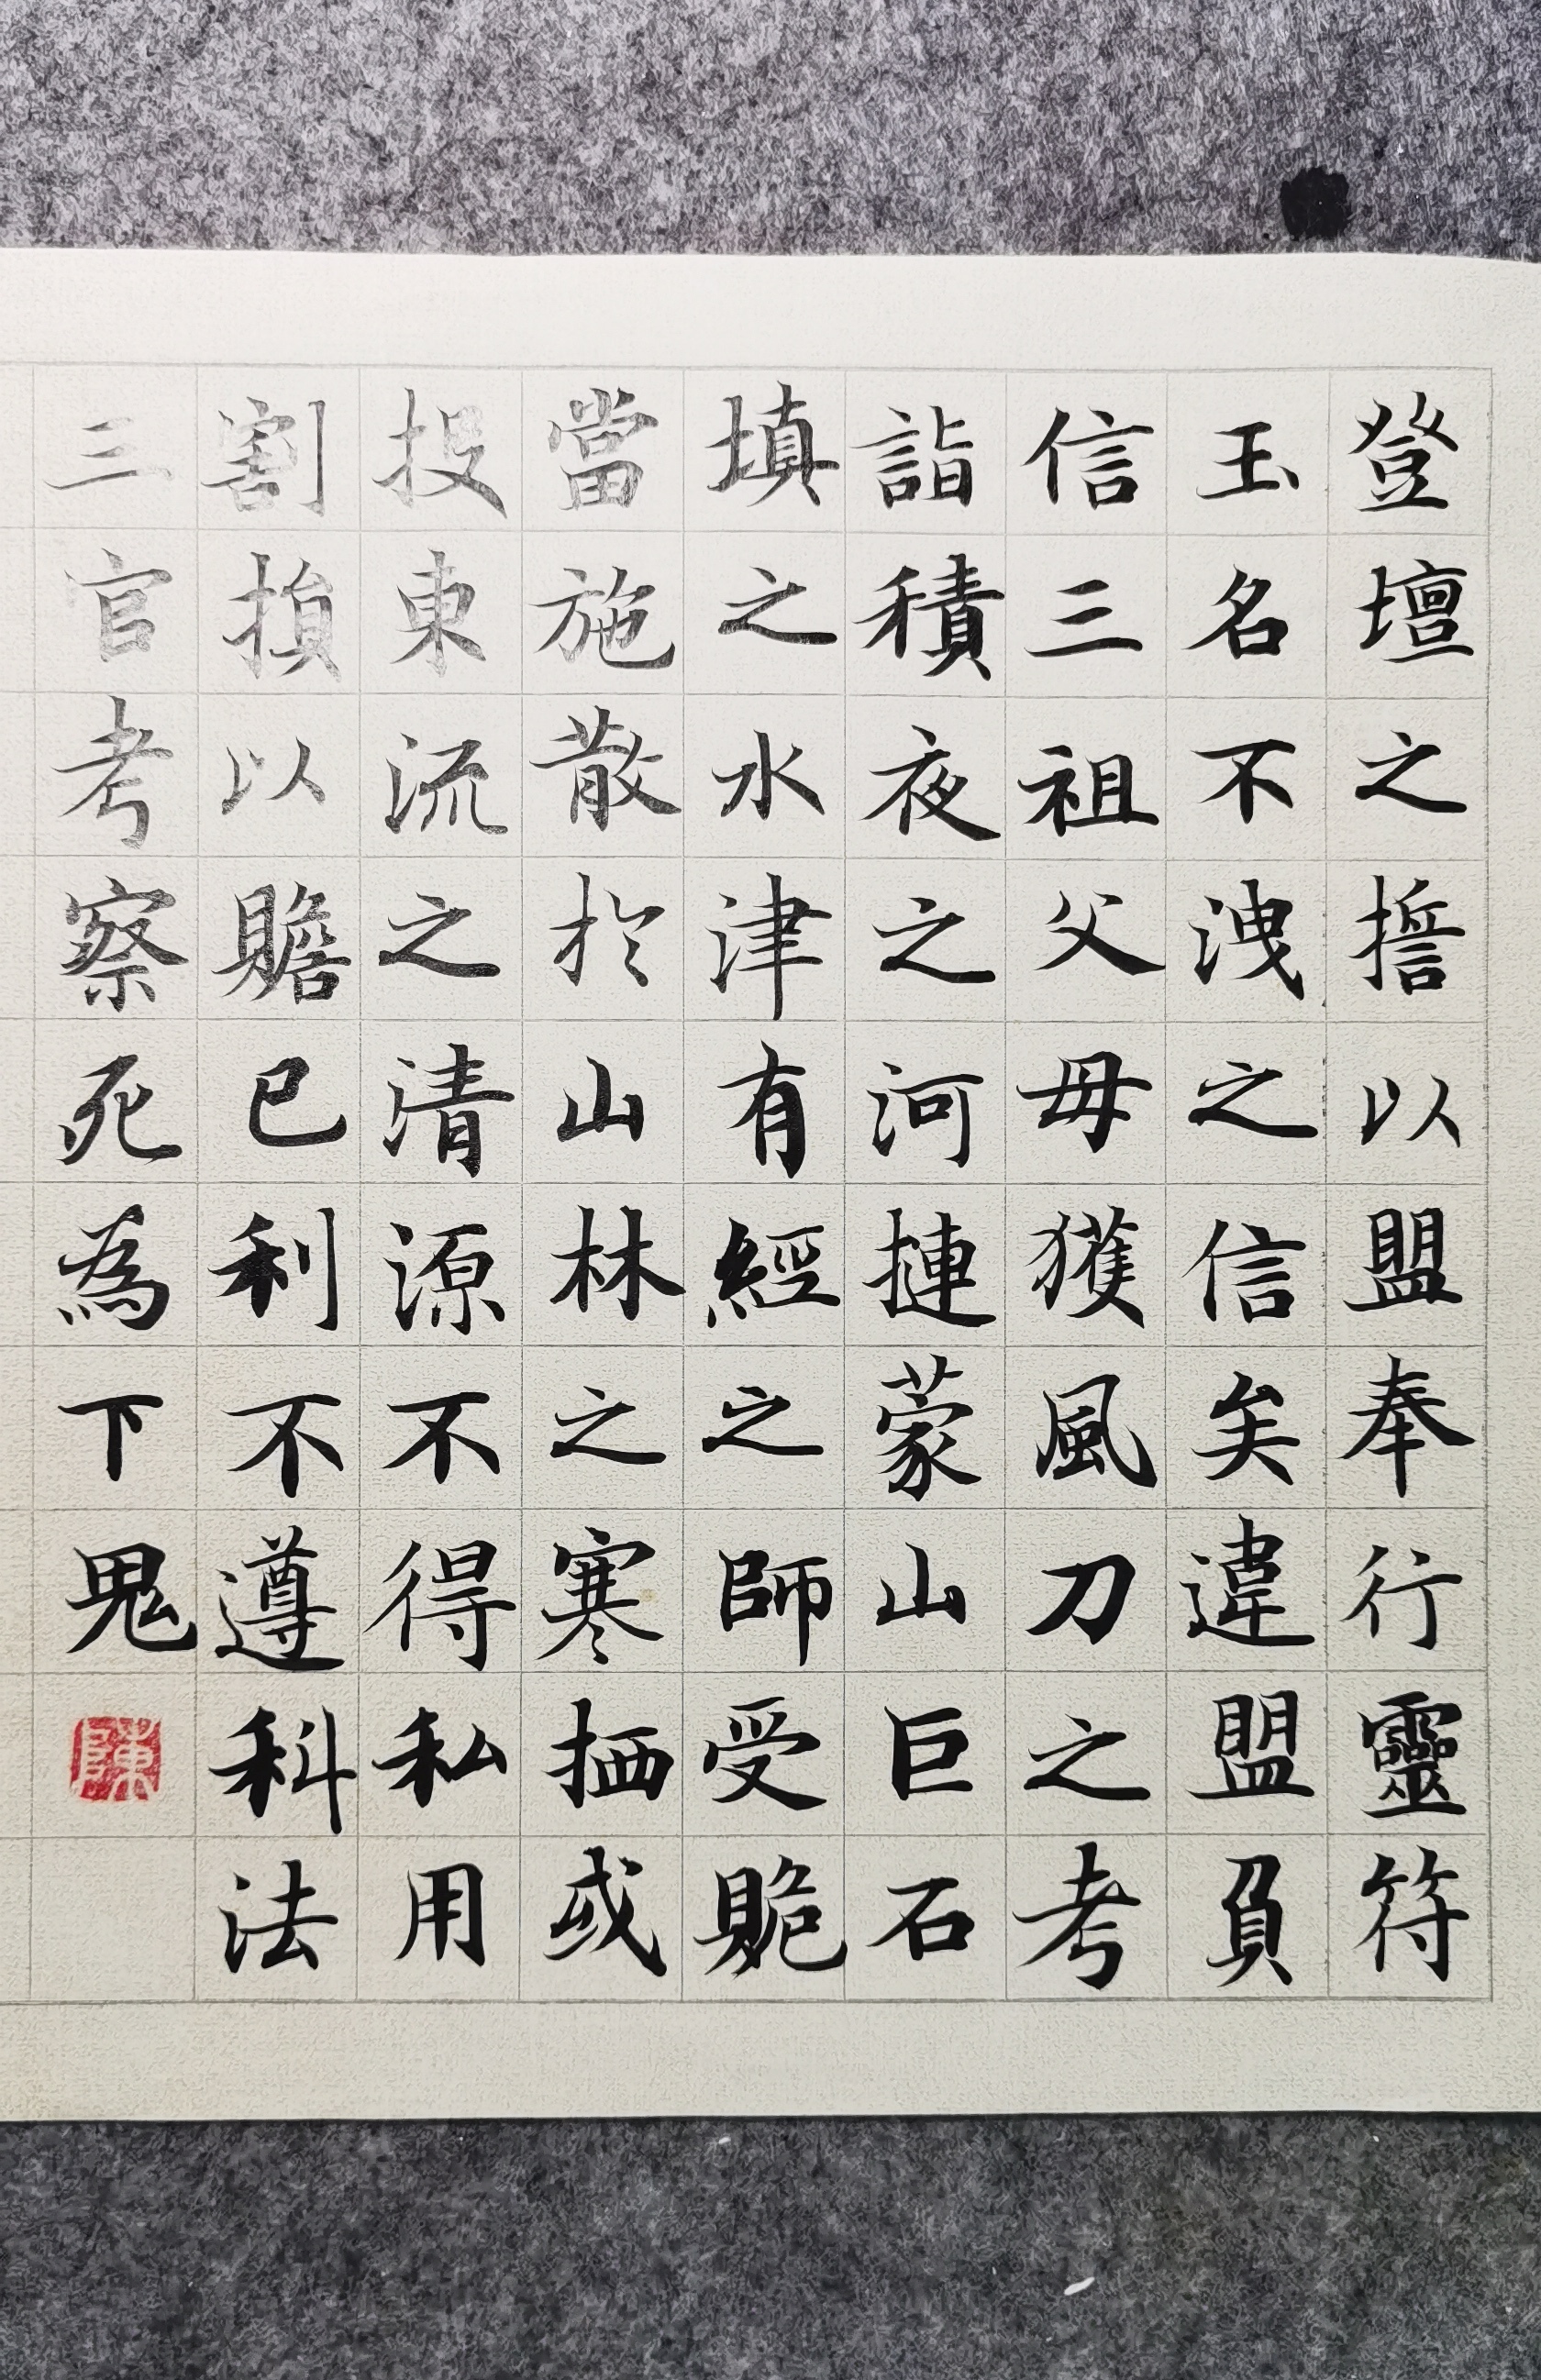 登壇之誓以盟奉行靈符
玉名不洩之信矣違盟負
信三祖父母獲風刀之考
詣積夜之河摙蒙山巨石
填之水津有經之師受賍
當施散於山林之寒栖或
投東流之清源不得私用
割損以贍己利不遵科法
三官考察死為下鬼
陳